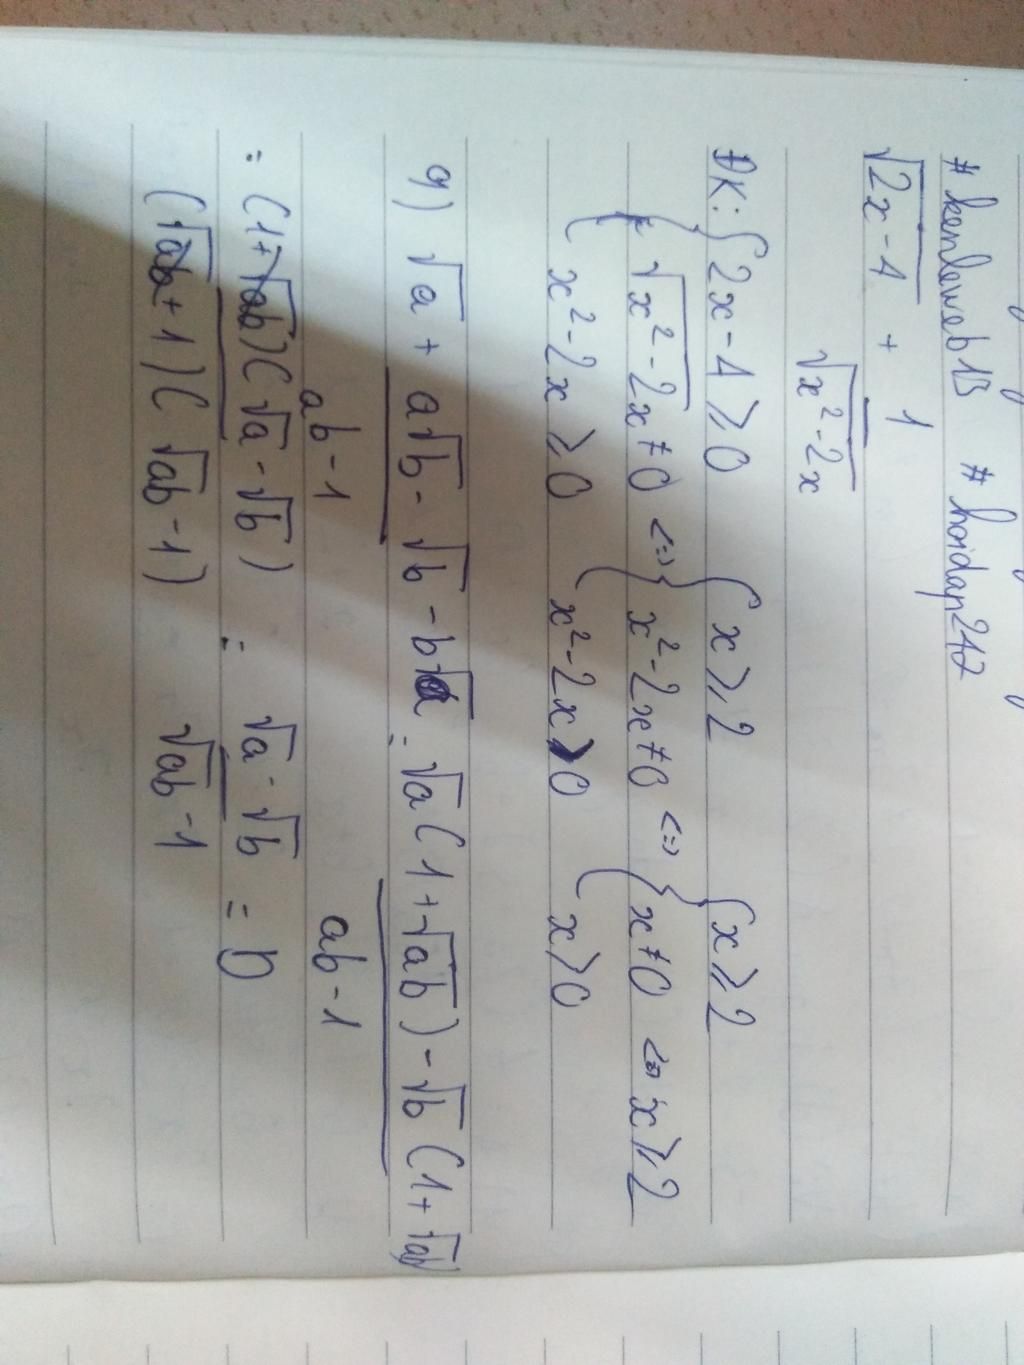 # kenleweb13 # hoidap247
√(2x-4) + 1/√(x²-2x)
ĐK: { 2x-4 ⩾ 0 { x ⩾ 2 { x ⩾ 2
{ √(x²-2x) ≠ 0 <=> { x²-2x ≠ 0 <=> { x ≠ 0 <=> x ⩾ 2
{ x²-2x ⩾ 0 { x²-2x ⩾ 0 { x > 0
9) (√a + a√b - √b - b√a)/(ab-1) = (√a(1+√ab) - √b(1+√ab))/(ab-1)
= ((1+√ab)(√a-√b))/((√ab+1)(√ab-1)) = (√a-√b)/(√ab-1) = D